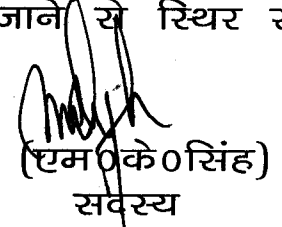 जाने से स्थिर
(एम0के0सिंह)
सदस्य